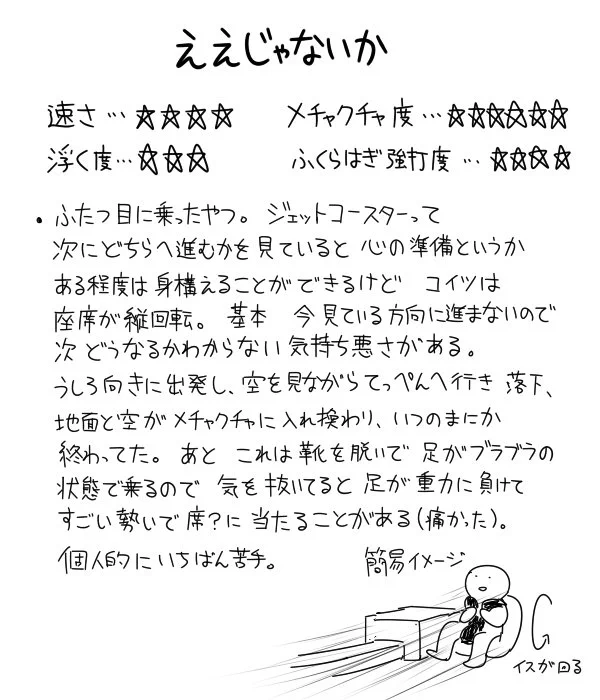 ええじゃないか
速さ…☆☆☆☆ メチャクチャ度…☆☆☆☆☆☆
浮く度…☆☆☆ ふくらはぎ強打度…☆☆☆☆
・ふたつ目に乗ったやつ。ジェットコースターって
次にどちらへ進むかを見ていると心の準備というか
ある程度は身構えることができるけど コイツは
座席が縦回転。基本 今見ている方向に進まないので
次どうなるかわからない気持ち悪さがある。
うしろ向きに出発し、空を見ながらてっぺんへ行き落下、
地面と空がメチャクチャに入れ換わり、いつのまにか
終わってた。あと これは靴を脱いで足がブラブラの
状態で乗るので 気を抜いてると足が重力に負けて
すごい勢いで席?に当たることがある(痛かった)。
個人的にいちばん苦手。
簡易イメージ
イスが回る